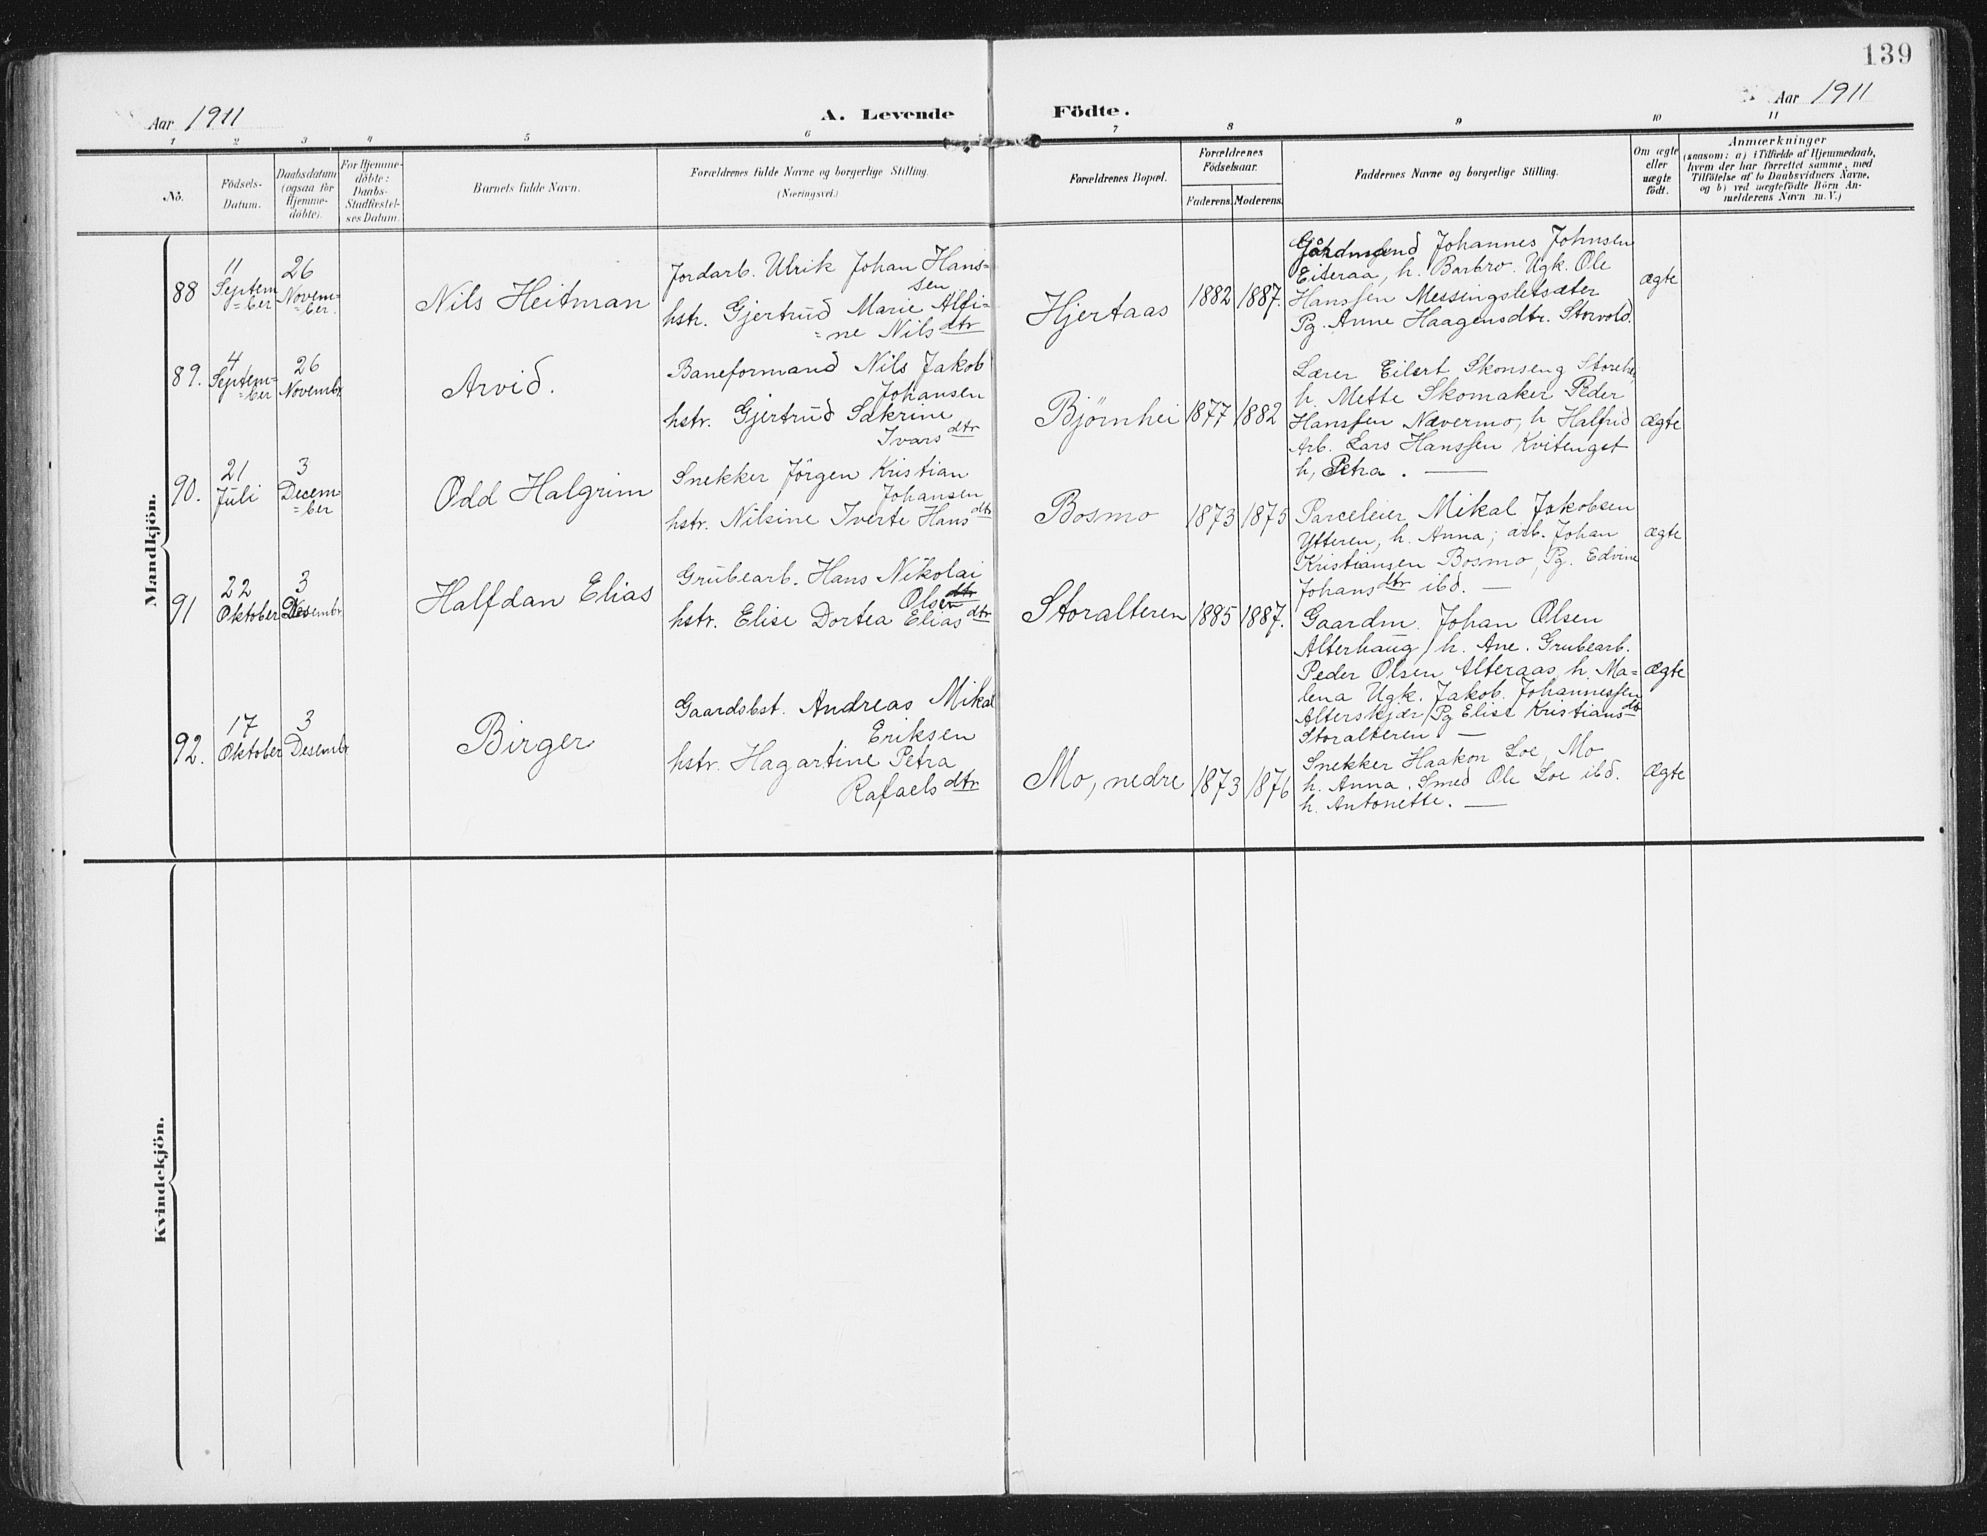 139
Aar 1911
A. Levende Födte.
Aar 1911
1 2 3 4 5 6 7 8 9 10 11
No.
Födsels-
Datum.
Daabsdatum
(ogsaa for
Hjemme-
döbte).
For Hjemme-
döbte:
Daabs-
Stadfæstel-
ses Datum.
Barnets fulde Navn.
Forældrenes fulde Navne og borgerlige Stilling.
(Næringsvei.)
Forældrenes Bopæl.
Forældrenes
Födselsaar.
Faderens. Moderens.
Faddernes Navne og borgerlige Stilling.
Om ægte
eller
uægte
födt.
Anmærkninger
(saasom: a) i Tilfælde af Hjemmedaab,
hvem der har forrettet samme, med
Tilföielse af to Daabsvidners Navne,
og b) ved uægtefödte Börn An-
melderens Navn m. V.)
Mandkjön.
88
11
Septem
=ber
26
Novem=
=ber.
Nils Heitman
Jordarb. Ulrik Johan Hans=
sen
hstr. Gjertrud Marie Alfi=
=ne Nilsdtr
Hjertaas
1882 1887.
Johannes Johnsen
Eiteraa, h. Barbro. Ugk. Ole
Hanssen Messingsletsæter
Pg. Anne Haagensdtr. Storvold.
ægte
89.
4
Septem=
=ber
26
Novembr.
Arvid.
Baneformand Nils Jakob
Johansen
hstr. Gjertrud Sakrine
Ivarsdtr
Bjørnhei
1877 1882
Lærer Eilert Skonseng
h. Mette Skomaker Peder
Hanssen Nævermo, h Halfrid
Arb. Lars Hanssen Kvitenget
h, Petra. —
ægte
90.
21
Juli
3
Decem
=ber
Odd Halgrim
Snekker Jörgen Kristian
Johansen
hstr. Nilsine Iverte Hansdtr
Bosmo
1873 1875
Parceleier Mikal Jakobsen
Ytteren, h. Anna; arb. Johan
Kristiansen Bosmo, Pg. Edvine
Johansdtr ibd. —
ægte
91
22
Oktober
3
Desembr.
Halfdan Elias
Grubearb. Hans Nikolai
Olsen
hstr. Elise Dortea Eliasdtr
Storalteren
1885 1887.
Gaardm. Johan Olsen
Alterhaug / h. Ane. Grubearb.
Peder Olsen Alteraas h. Ma=
lena Ugk. Jakob Johannessen
Alterskjær / Pg Elise Kristiansdtr
Storalteren —
ægte
92.
17
Oktober
3
Desembr
Birger
Gaardsbst. Andreas Mikal
Eriksen
hstr. Hagartine Petra
Rafaelsdtr
Mo, nedre
1873 1876
Snekker Haakon Loe, Mo
h. Anna. Smed Ole Loe ibd.
h. Antonette. —
Ægte
Kvindekjön.